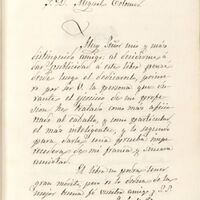 S. D. Miguel Colomer
Muy Señor mio y más
distinguido amigo: al decidirme á
dar publicidad á este libro pensé
desde luego el dedicarle, prime-
ro por ser V. la persona que du-
rante el ejercicio de mi profe-
sion, he tratado como más aficio-
nado al caballo, y como particular
el más inteligente; y lo segundo
para darle una prueba impe-
recedera de mi franca y sincera
amistad.
El libro no podrá tener
gran mérito, pero es la de la
mejor buena fe vuestro amigo y S. S.